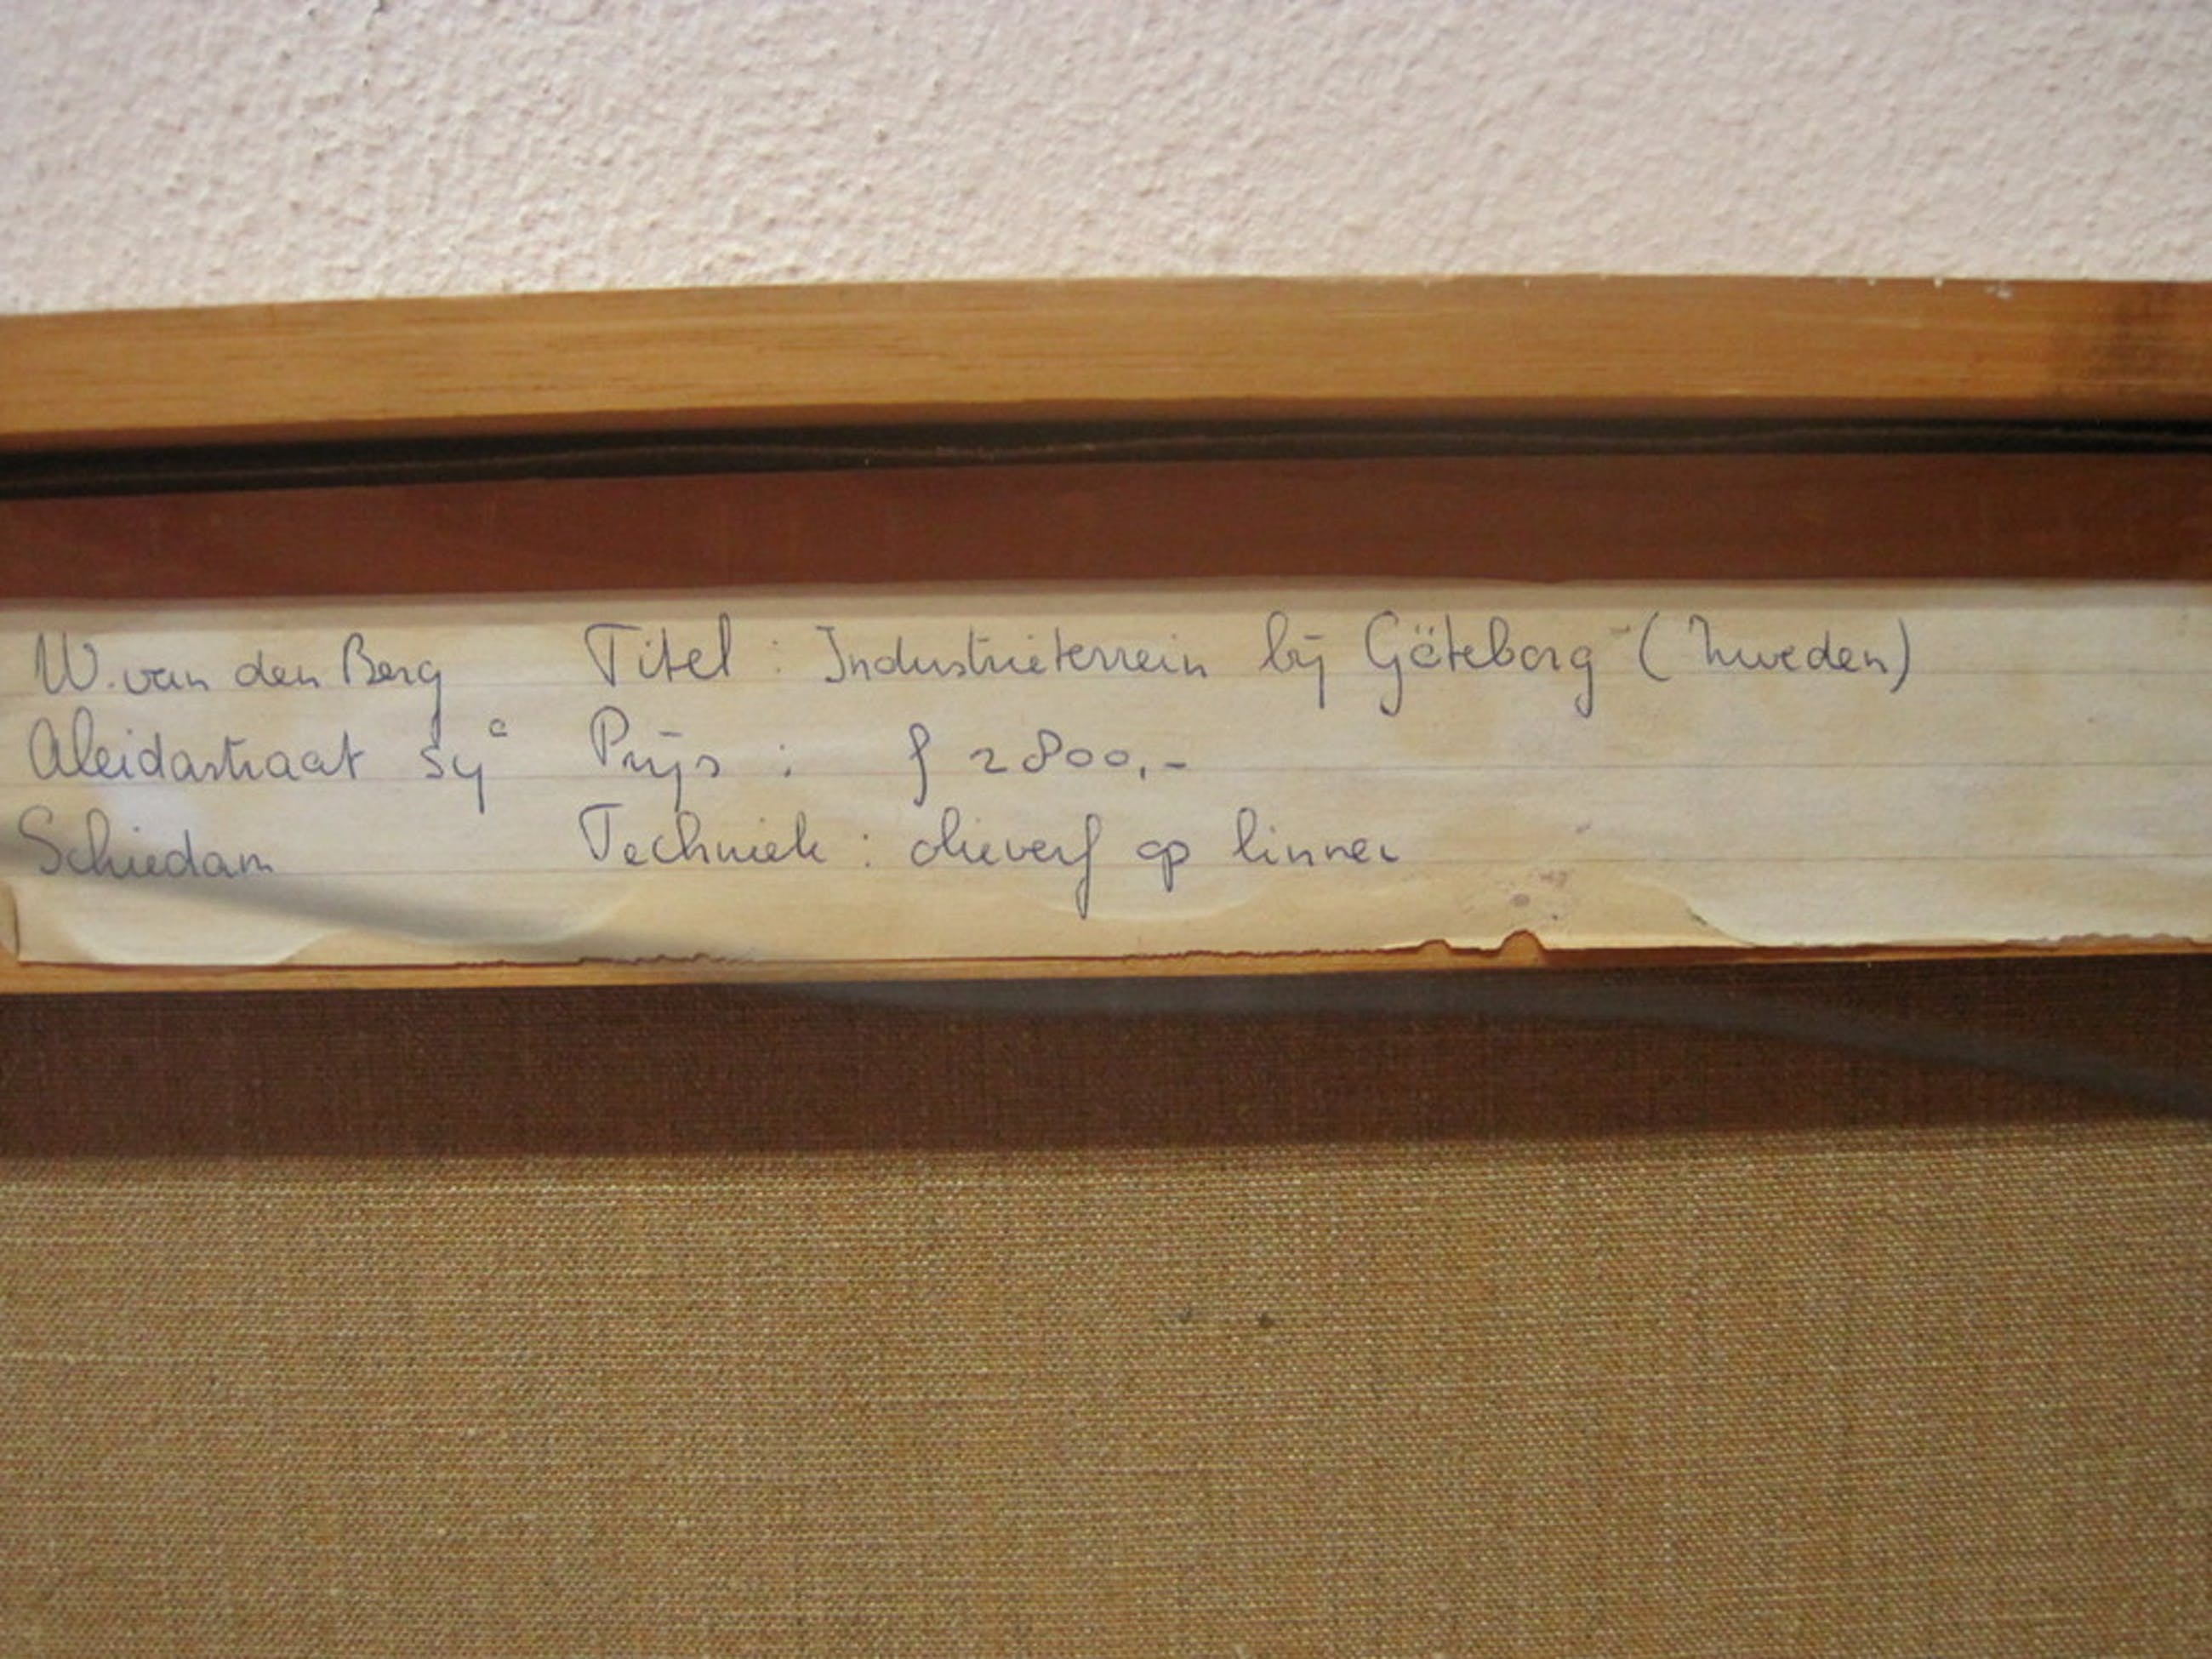 W. van den Berg Titel : Industrieterrein bij Göteborg (Zweden)
Aleidastraat Prijs : f 2800,-
Schiedam Techniek : olieverf op linnen